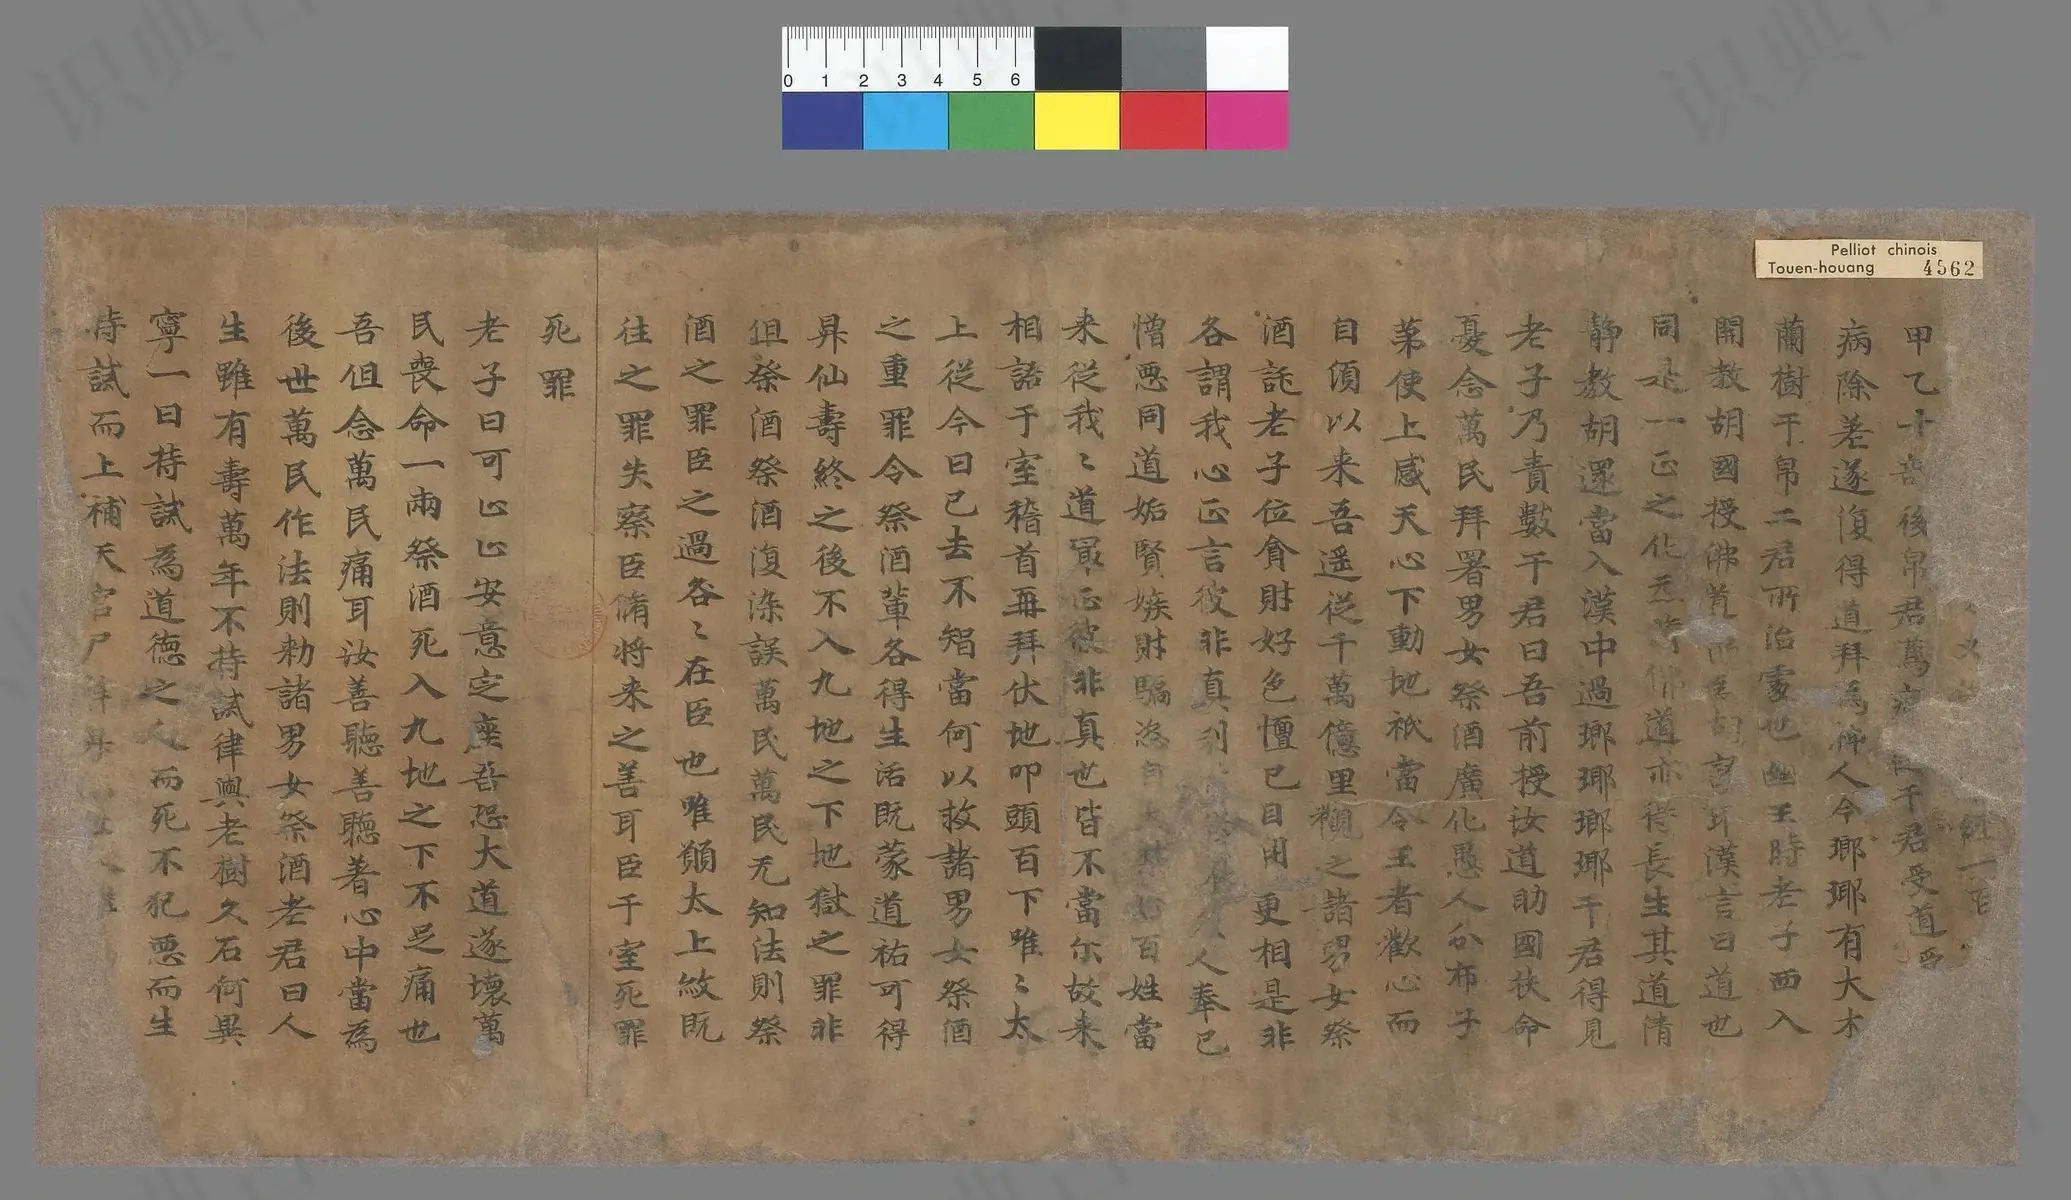 0 1 2 3 4 5 6
Pelliot chinois
Touen-houang 4562
經一百
甲乙十 後帛君萬 千君受道
病除差遂復得道拜為 人今瑯琊有大木
蘭樹干帛二君所治處也幽王時老子西入
開教胡國授佛 胡 耳漢言曰道也
同是一正之化 佛道亦得長生其道清
静教胡還當入漢中過瑯琊瑯琊干君得見
老子乃責數干君曰吾前授汝道助國扶命
憂念萬民拜署男女祭酒廣化愚人分布子
苐使上感天心下動地祇當令王者歡心而
自須以来吾遥從千萬億里觀之諸男女祭
酒託老子位貪財好色擅已自用更相是非
各謂我心正言彼非真利 人奉已
憎惡同道妬賢嫉財驕恣自 百姓當
来從我〻道冣正彼非真世皆不當尔故来
相語于室稽首再拜伏地叩頭百下唯〻太
上従今日已去不智當何以救諸男女祭酒
之重罪令祭酒輩各得生活既蒙道祐可得
昇仙壽終之後不入九地之下地獄之罪非
但祭酒祭酒復染誤萬民萬民无知法則祭
酒之罪臣之過各〻在臣也唯願太上紋既
往之罪失察臣脩将来之善耳臣干室死罪
死罪
老子曰可心心安意定座吾恐大道遂壊萬
民喪命一兩祭酒死入九地之下不足痛也
吾但念萬民痛耳汝善聽善聽著心中當為
後世萬民作法則勑諸男女祭酒老君曰人
生雖有壽萬年不持誡律與老樹久石何異
寧一日持誡為道德之人而死不犯惡而生
持誡而上補天官尸